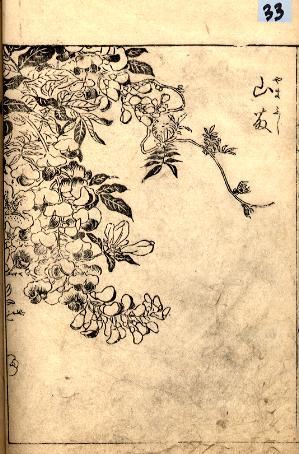 33
やまふし
山藤